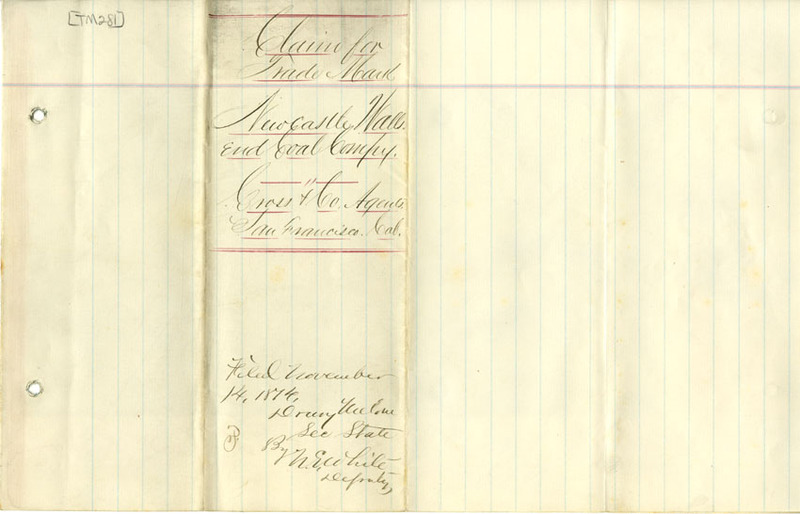 [TM281]
Claim for
Trade Mark
Newcastle Walls.
End Coal Compy.
"
Cross & Co. Agents.
San Francisco. Cal.
Filed November
14, 1874,
Drury Melone
Sec State
By
N. E. White
Deputy